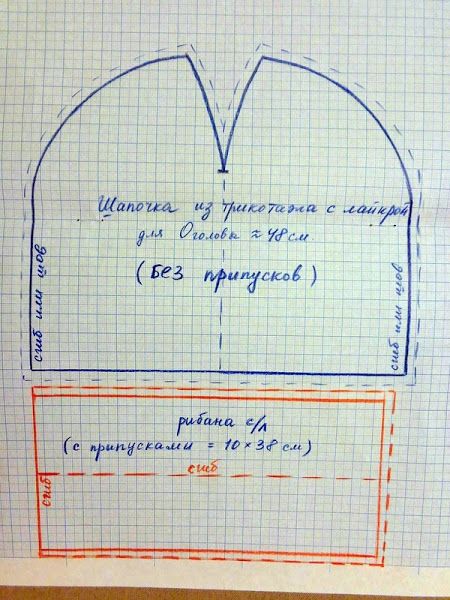 Шапочка из трикотажа с лайкрой
для Оголовы ≈ 48 см
(без припусков)
сгиб или шов
сгиб или шов
рибана с/л
(с припусками = 10 × 38 см)
сгиб
сгиб